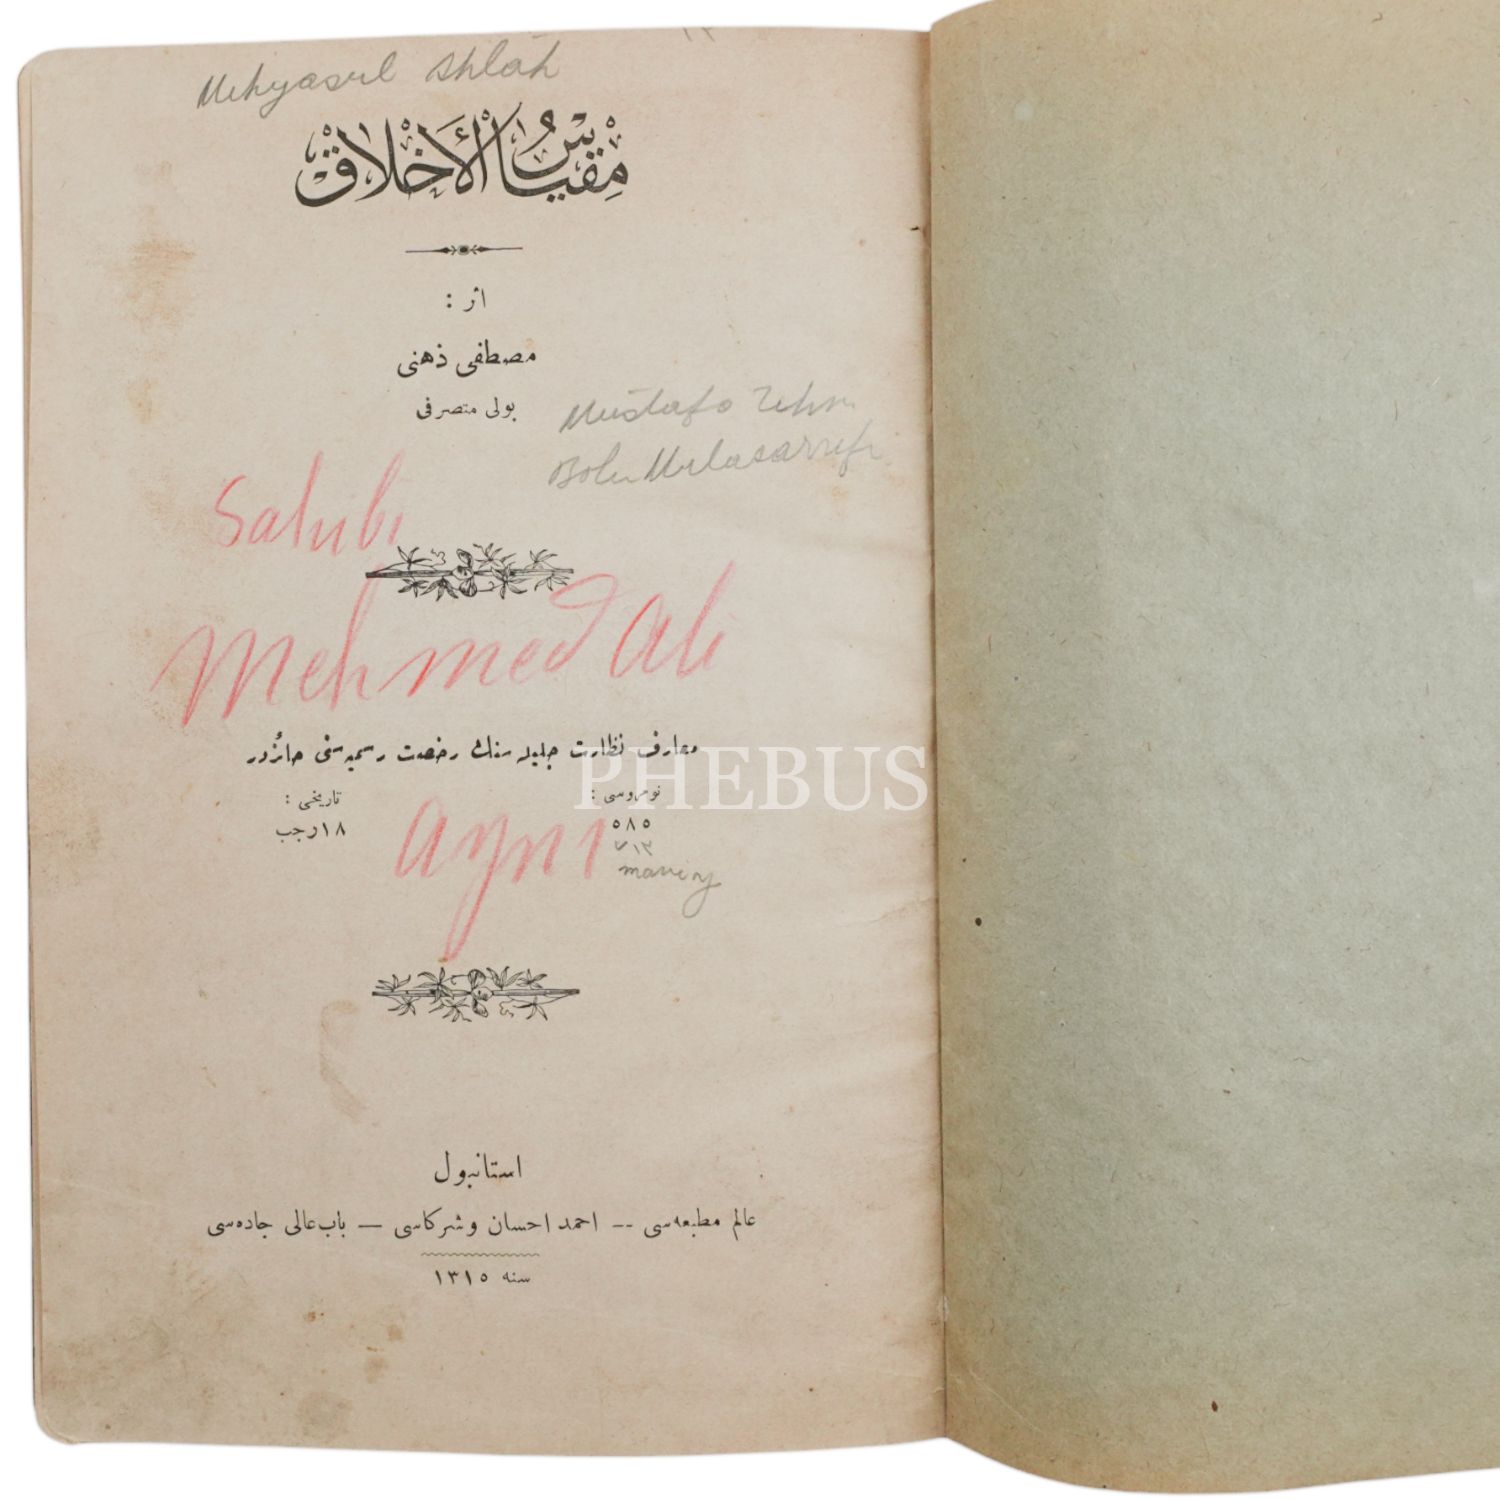 Mehyasul Ahlâk
مِقْيَاسُ الْأَخْلَاقْ
اثر :
مصطفى ذهنى
بولى متصرفى
Mustafa Zehni
Bolu Mutasarrıfı
Sahibi
Mehmed Ali
معارف نظارت جليله سنك رخصت رسميه سنى حائزدر
نومروسى :
تاريخى :
٥٨٥
١٨ رجب
Aynı
استانبول
عالم مطبعه سى -- احمد احسان وشركاسى — باب عالى جاده سى
سنه ١٣١٥
PHEBUS